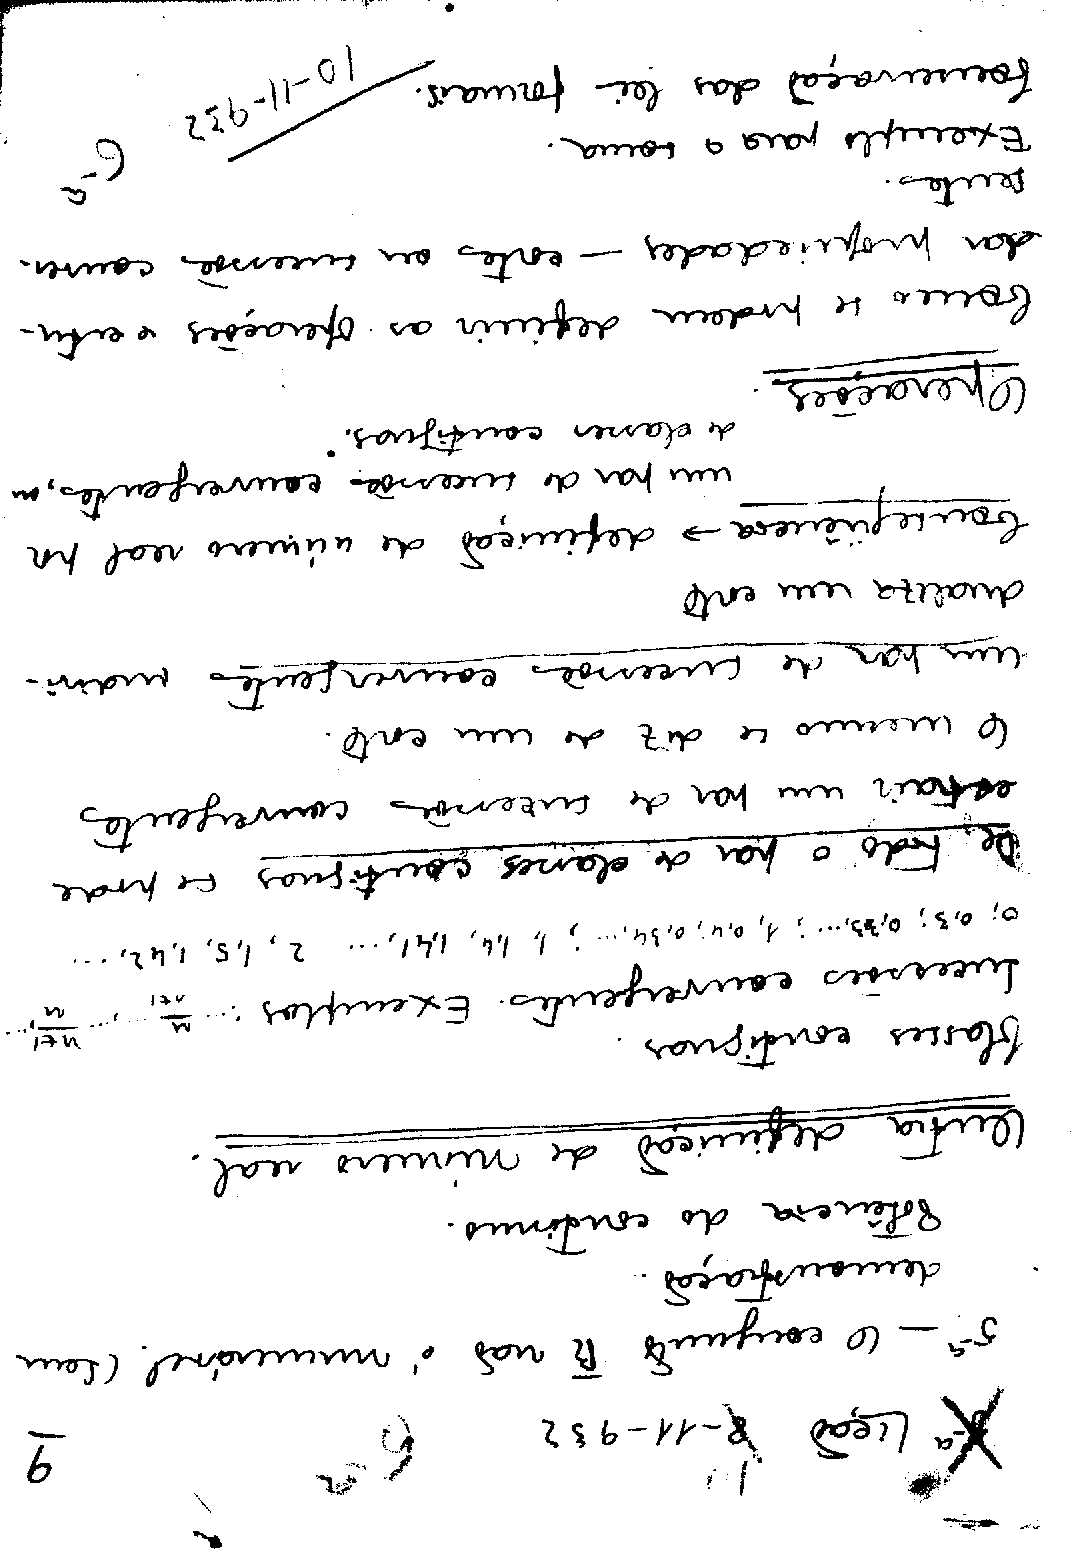 9
6ª
X-ª Lição 8-11-932
5ª — O conjunto R não é numerável. (Sem
demonstração.
Potência do contínuo.
Outra definição de número real.
Classes contíguas.
Sucessões convergentes. Exemplos: ... n/n+1, ... n+1/n, ...
0; 0,3; 0,33,...; 1, 0,4; 0,34,...; 1, 1,4, 1,41,... 2, 1,5, 1,42, ...
De todo o par de classes contíguas se pode
extrair um par de sucessões convergentes
O mesmo se diz de um corte.
Um par de sucessões convergentes indivi-
dualiza um corte
Conseqüência → definição de número real por
um par de sucessões convergentes, ou
de classes contíguas.
Operações.
Como se podem definir as operações e estu-
dar propriedades — cortes ou sucessões conver-
gentes.
Exemplo para a soma.
Conservação das leis formais.
6-ª
10-11-932